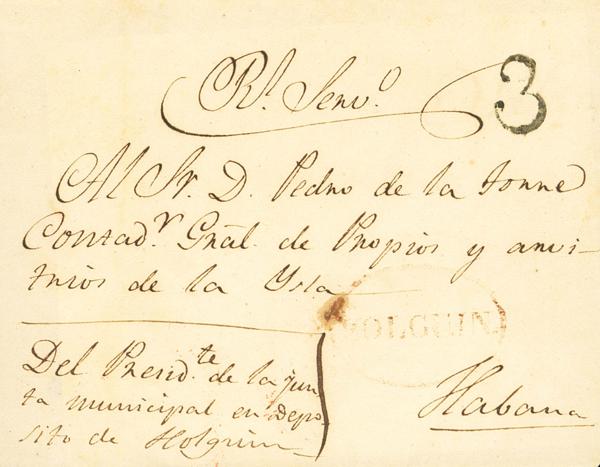 Rl. Servo.
3
Al Sr. D. Pedro de la torre
Contadr. Gnāl. de Propios y arvi-
trios de la Ysla
HOLGUIN
Del Presidte. de la jun
ta municipal en Depo-
sito de Holguin
Habana